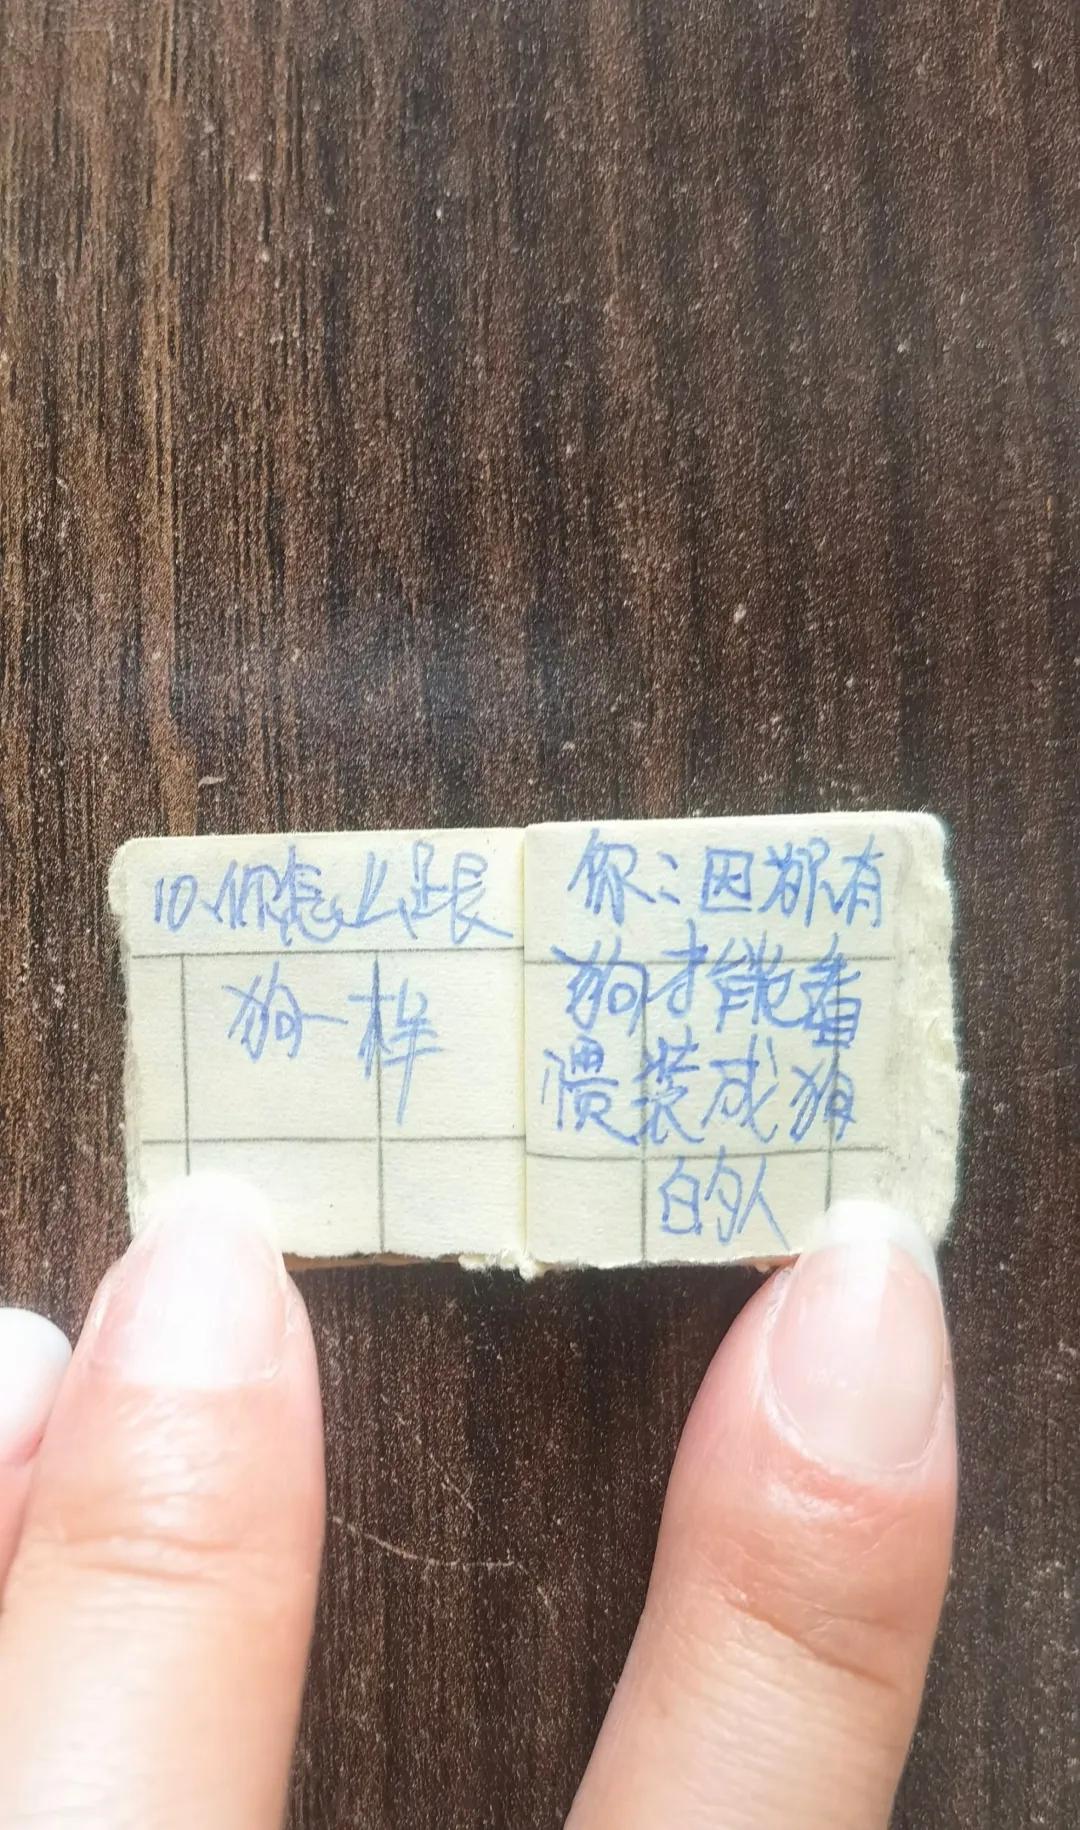 10、你怎么跟
狗一样
你：因为只有
狗才能看
惯装成狗
的人